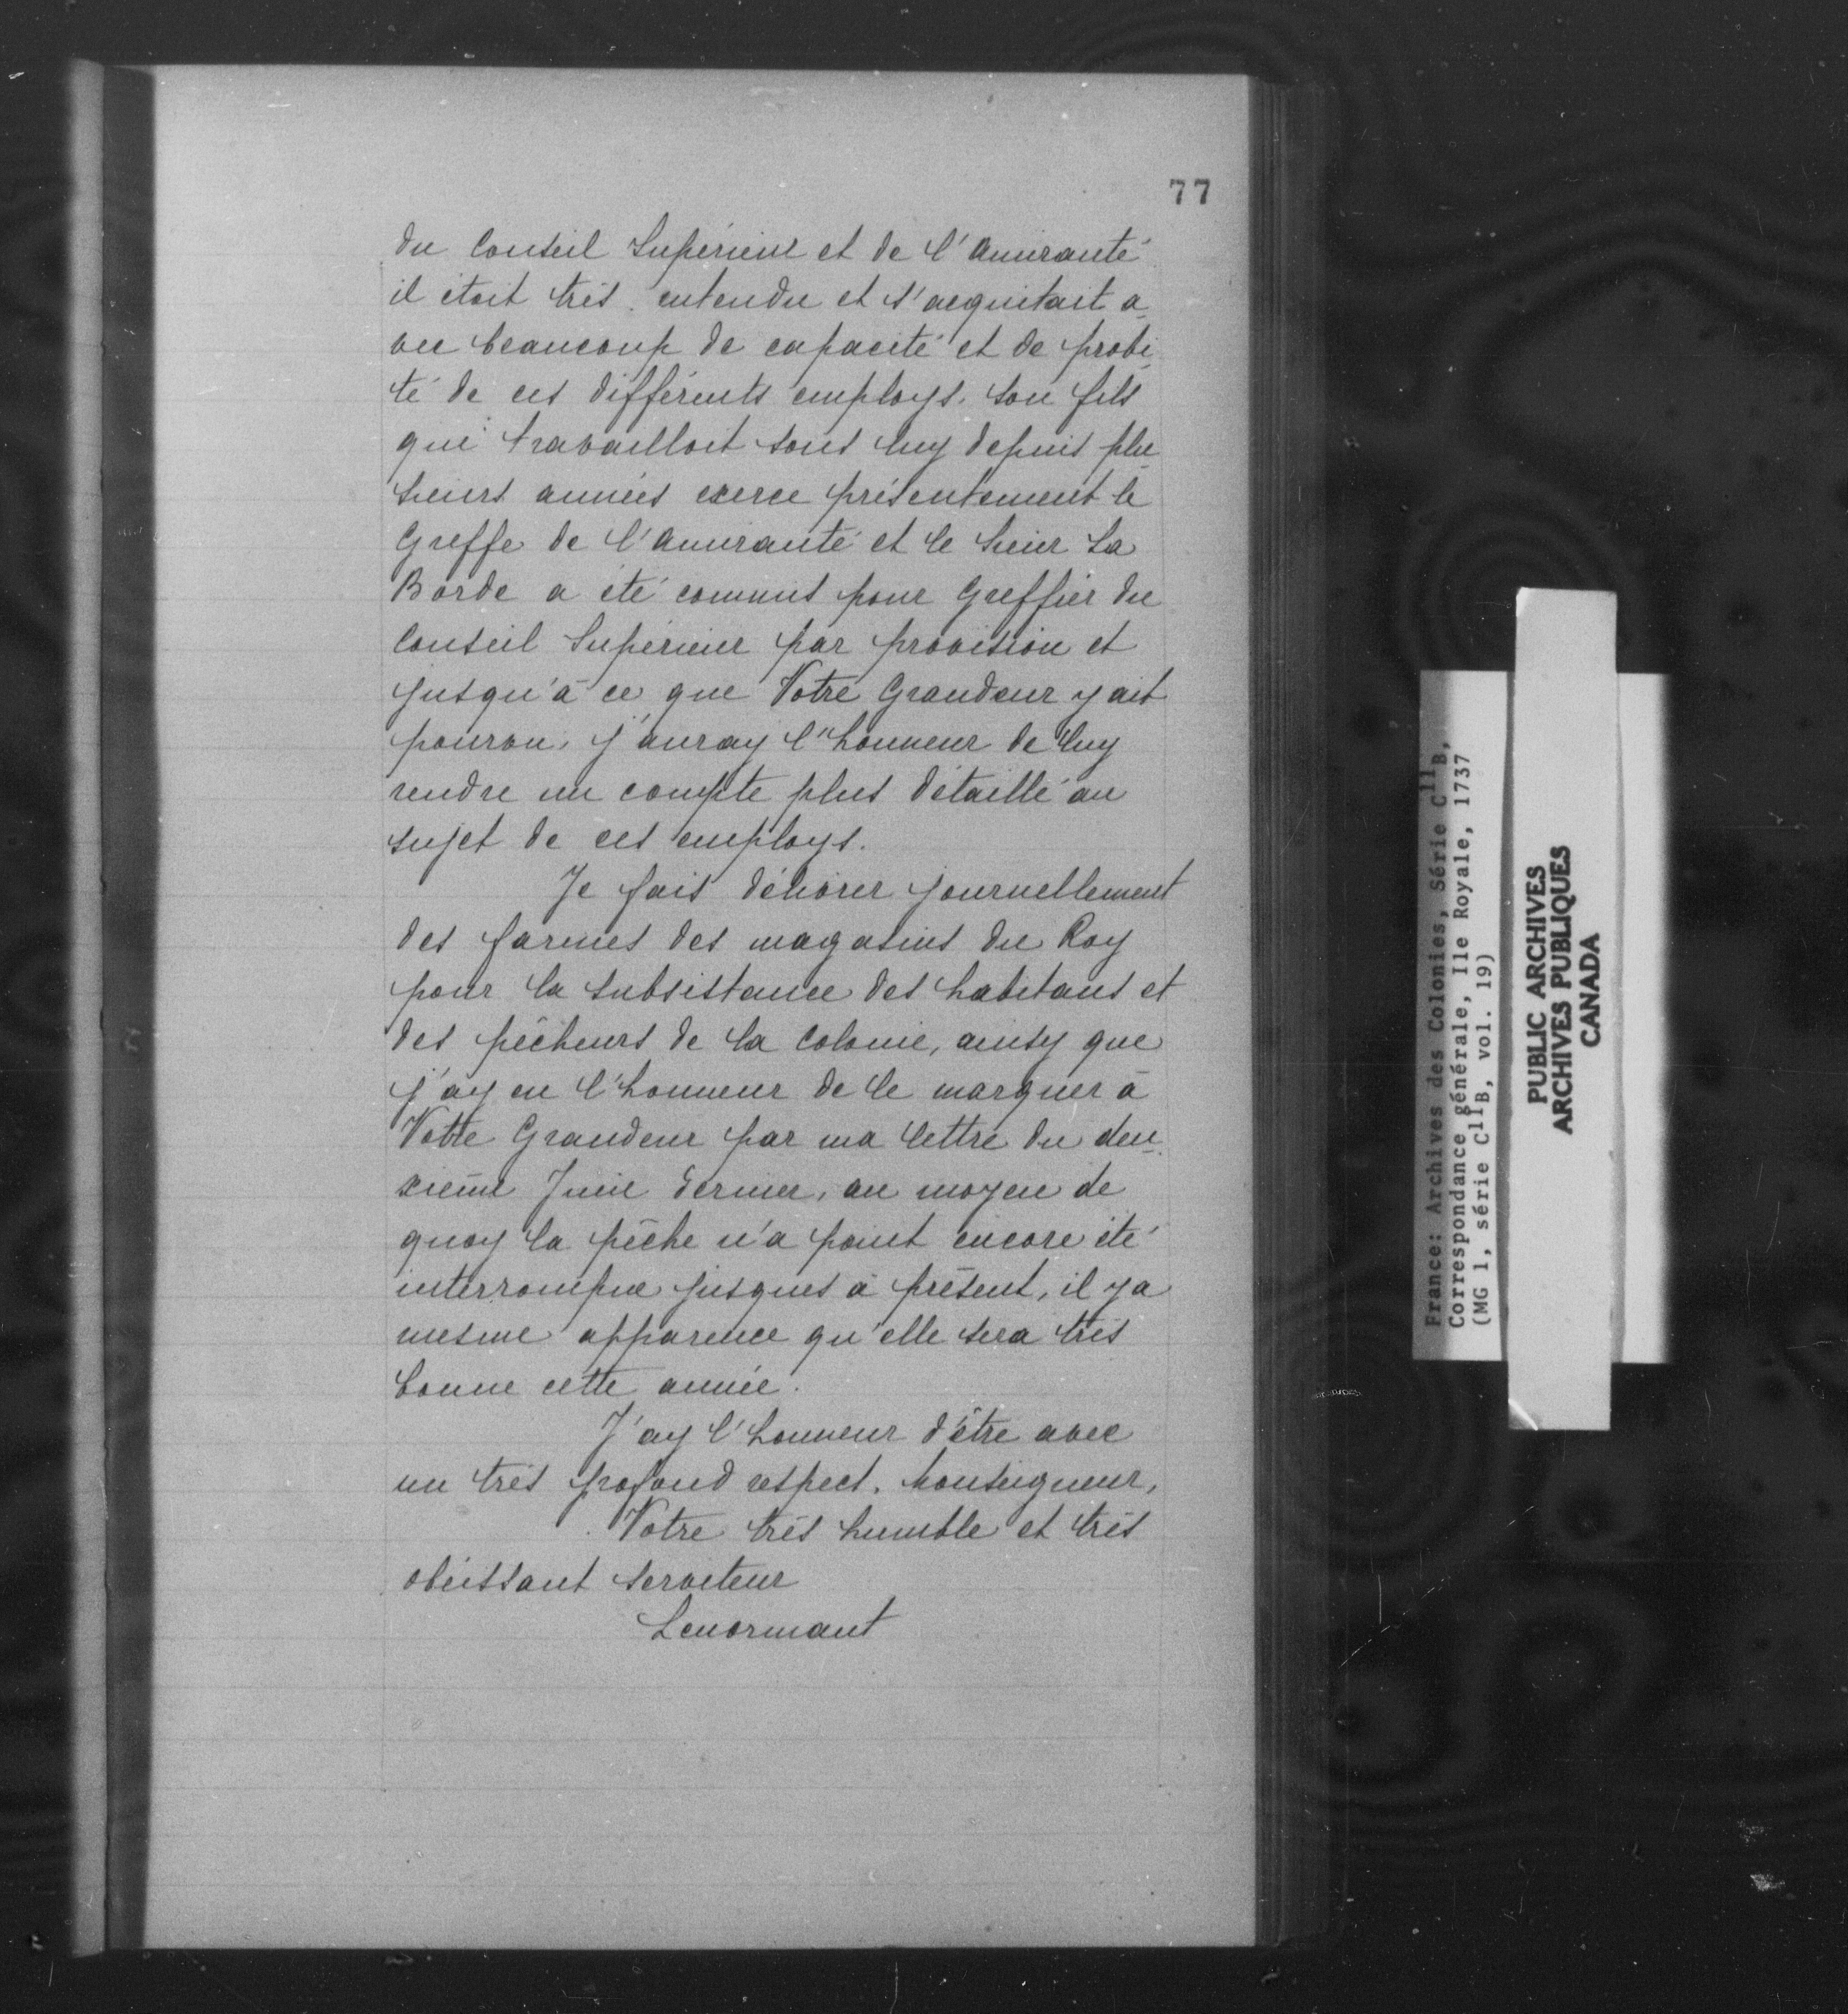 77
du Conseil Supérieur et de l'Amirauté
il étoit très entendu et s'acquitait a-
vec beaucoup de capacité et de probi-
té de ces différents employs. Son fils
qui travailloit sous luy depuis plu-
sieurs années exerce présentement le
Greffe de l'Amirauté et le Sieur La
Borde a été commis pour Greffier du
Conseil Supérieur par provision et
jusqu'à ce que Votre Grandeur y ait
pourvu, j'auray l'honneur de luy
rendre un compte plus détaillé au
sujet de ces employs.
Je fais délivrer journellement
des farines des magasins du Roy
pour la subsistance des habitans et
des pêcheurs de la colonie, ainsy que
j'ay eu l'honneur de le marquer à
Votre Grandeur par ma lettre du deu-
xième Juin dernier, au moyen de
quoy la pêche n'a point encore été
interrompue jusques à présent, il y a
mesme apparence qu'elle sera très
bonne cette année.
J'ay l'honneur d'être avec
un très profond respect. Monseigneur,
Votre très humble et très
obéissant serviteur
Lenormant
France: Archives des Colonies, Série C11B,
Correspondance générale, Ile Royale, 1737
(MG 1, série C11B, vol. 19)
PUBLIC ARCHIVES
ARCHIVES PUBLIQUES
CANADA